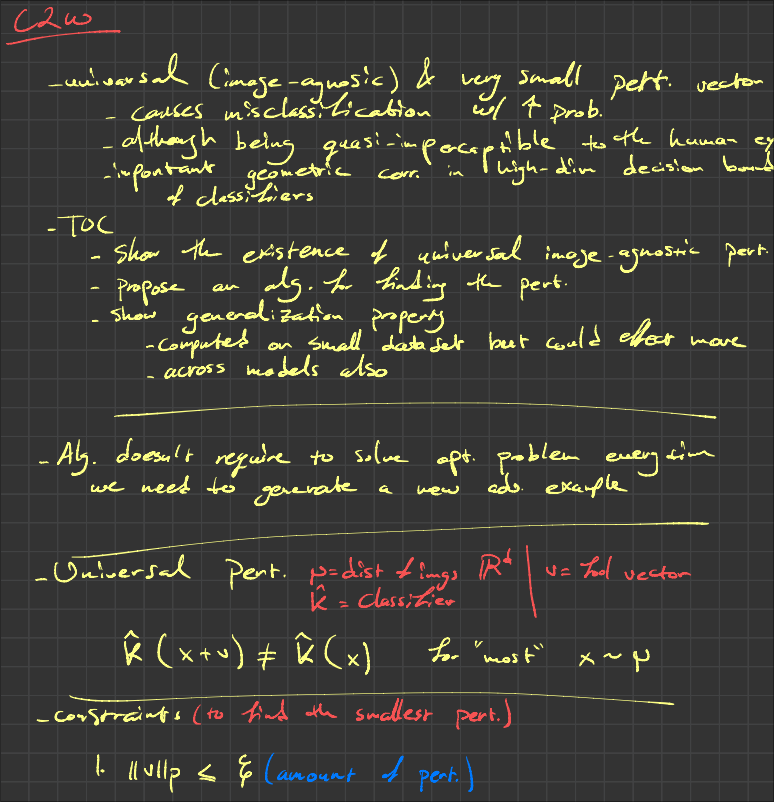 C2W
- universal (image-agnosic) & very small pert. vector
- causes misclassification w/ ↑ prob.
- although being quasi-imperceptible to the human ey
- important geometric corr. in high-dim decision bound
of classifiers
- TOC
- show the existence of universal image-agnostic pert.
- propose an alg. for finding the pert.
- show generalization property
- computed on small dataset but could effect more
- across models also
- Alg. doesn't require to solve opt. problem everytim
we need to generate a new adv. example
- Universal pert. μ=dist of imgs ℝᵈ | v= fool vector
k̂ = Classifier
k̂(x+v) ≠ k̂(x) for "most" x ~ μ
- constraints (to find the smallest pert.)
1. ||v||p ≤ ξ (amount of pert.)